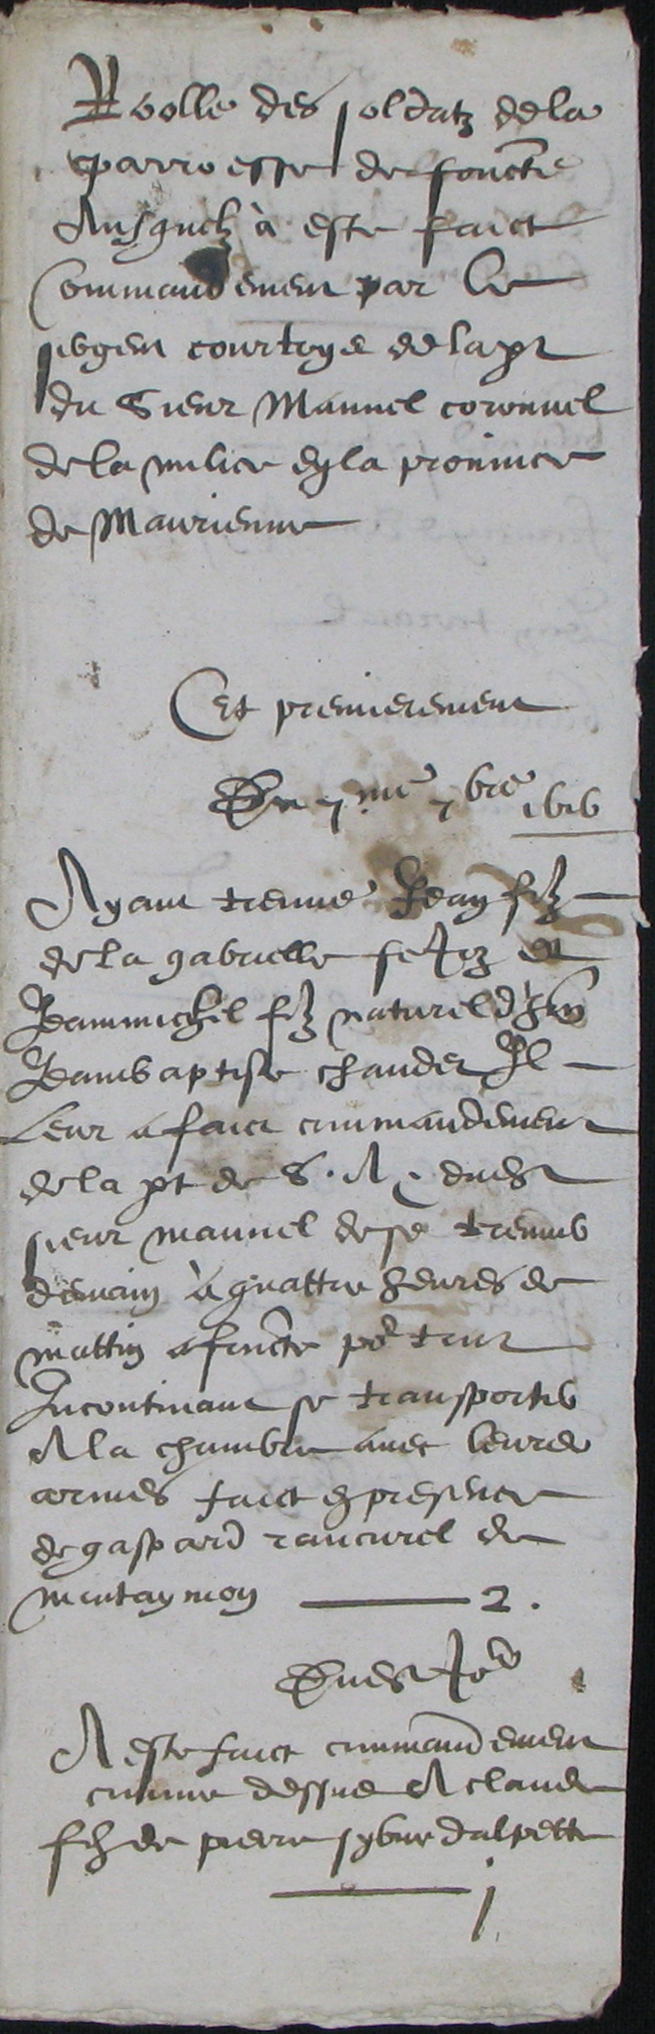 Roolle des soldatz de la
parroesse de foncte
Ausquelz à este faict
Commandement par le
sergent courtoys de la pt
du Sieur Manuel coronnel
de la milice en la province
de Maurienne
Et premierement
Du 7me 7bre 1616
Ayant treuve Jean filz
de la gabrielle et
Jeanmichel filz naturel d'hen
Jeanbaptiste chaudet Il
Leur a faict commandement
de la pt de S. A. dudt
sieur manuel de se treuver
demain à quattre heures de
mattin a foncte po tout
Incontinant se transporter
A la chambre avec leurs
armes faict en presence
de gaspard rancurel de
montaymon 2.
Dudt Jor
A este faict commandement
comme dessus A claude
filz de pierre sybue dalpette
j